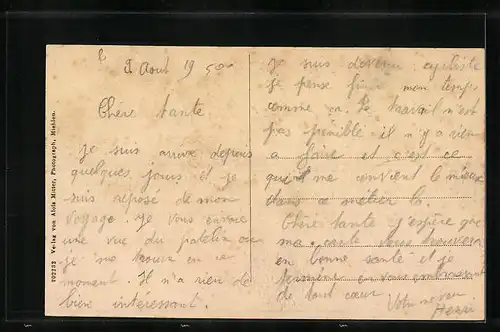 2 Aout 19
Chère tante
Je suis arrivé depuis
quelques jours et je
suis reposé de mon
voyage. Je vous envoie
une vue du patelin ou
je me trouve en ce
moment. Il n'a rien de
bien intéressant.
Je suis devenu cycliste
je pense mon temps
comme ca. Le travail n'est
pas pénible il n'y a rien
a faire et c'est ce
qui me convient le mieux
dans ce métier là.
Chère tante j'espère que
ma carte vous trouvera
en bonne santé et je
termine en vous embrassant
de tout cœur
Votre neveu
Henri
Verlag von Alois Photograph,